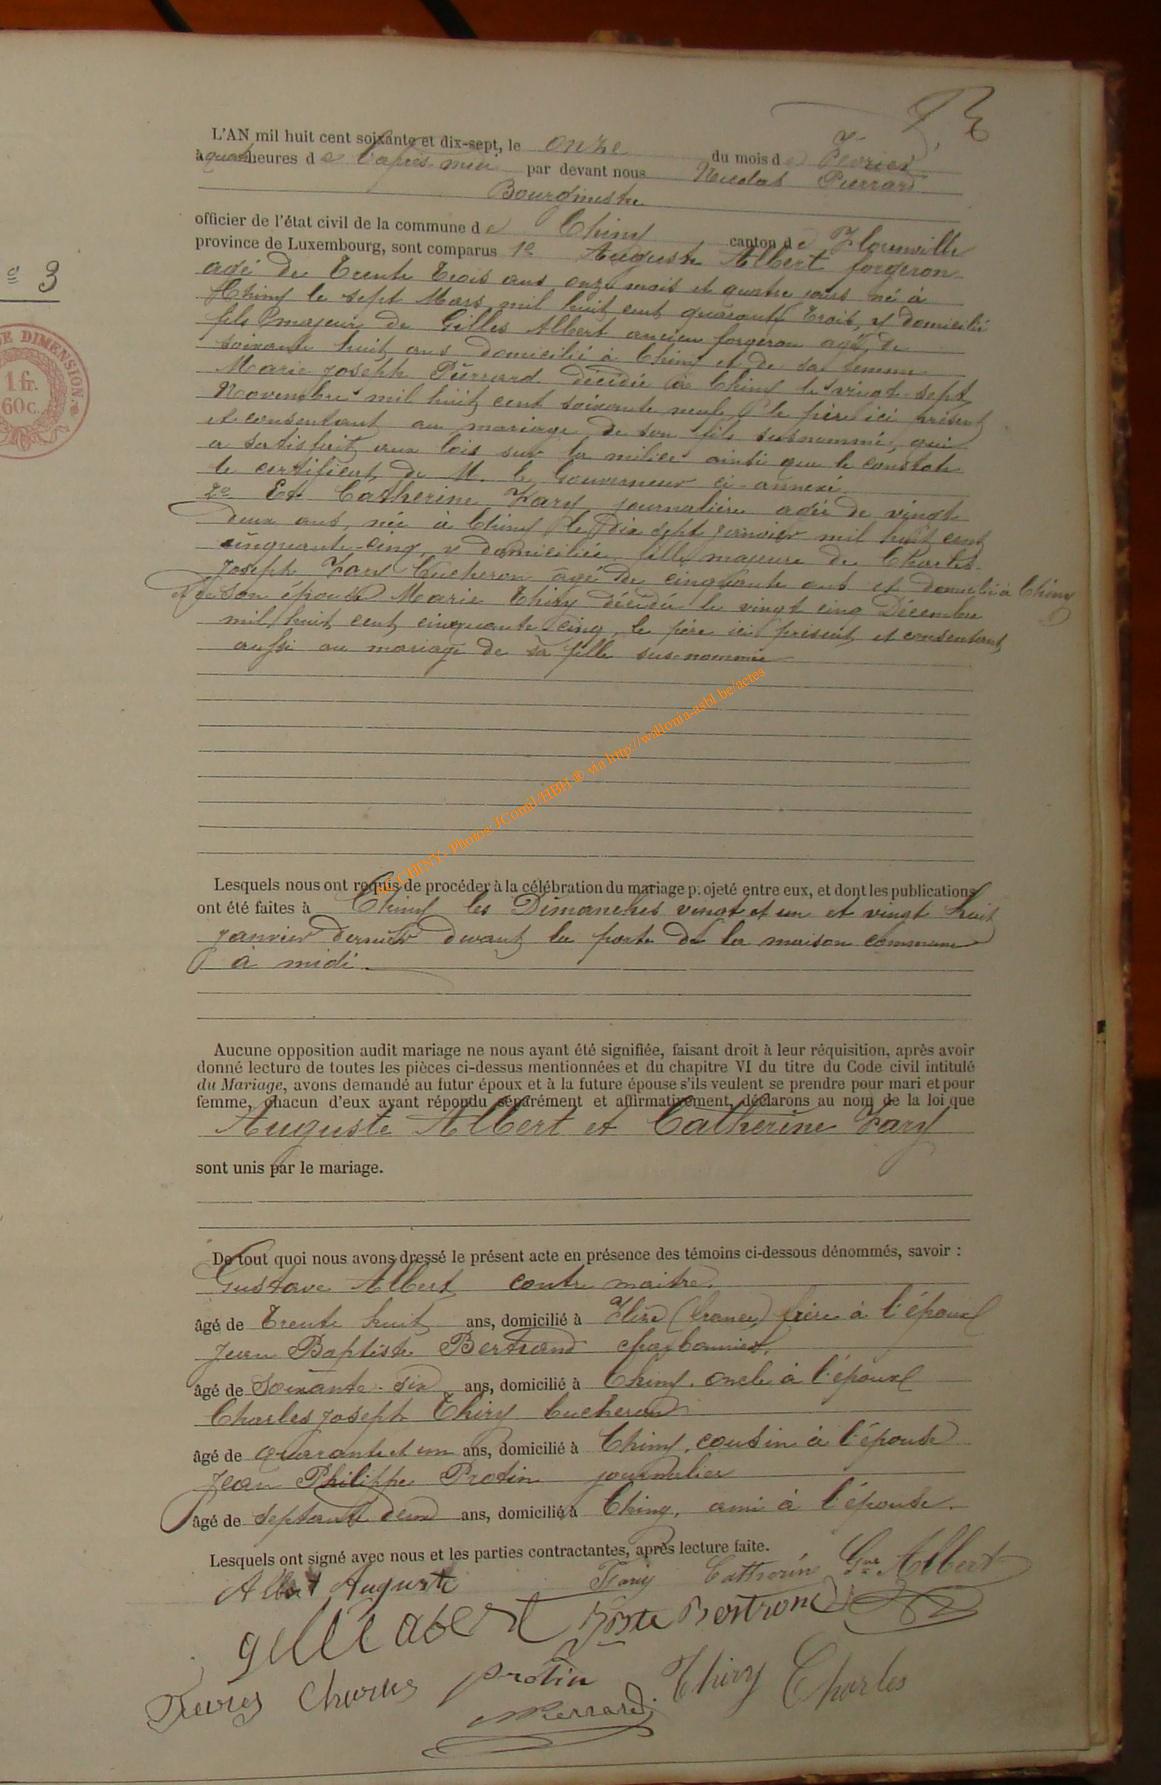 L'AN mil huit cent soixante et dix-sept, le onze du mois de Fevrier
à quatre heures de l'après midi par devant nous Nicolas Pierrard
Bourgmestre
officier de l'état civil de la commune de Chiny canton de Florenville
province de Luxembourg, sont comparus 1o Auguste Albert forgeron
agé de Trente Trois ans onze mois et quatre jours né à
Chiny le sept Mars mil huit cent quarante Trois, y domicilié
fils majeur de Gilles Albert ancien forgeron agé de
soixante huit ans domicilié à Chiny et de sa femme
Marie Joseph Pierrard décédée à Chiny le vingt-sept
Novembre mil huit cent soixante neuf le père ici présent
et consentant au mariage de son fils susnommé, qui
a satisfait aux lois sur la milice ainsi que le constate
le certificat de M. le Gouverneur ci-annexé.
2o Et Catherine Fary journalière agée de vingt
deux ans, née à Chiny le dix sept janvier mil huit cent
cinquante-cinq y domiciliée fille majeure de Charles
Joseph Fary bucheron agé de cinquante ans et domicilié à Chiny
et de son épouse Marie Thiry décédée le vingt cinq Décembre
mil huit cent cinquante cinq, le père ici présent et consentant
aussi au mariage de sa fille sus-nommée
N° 3
DE DIMENSION.
1 fr.
60 c.
CHINY - Photos JComil/HBH ® via http://wallonia-asbl.be/actes
Lesquels nous ont requis de procéder à la célébration du mariage projeté entre eux, et dont les publications
ont été faites à Chiny les Dimanches vingt et un et vingt huit
janvier dernier devant la porte de la maison commune
à midi.
Aucune opposition audit mariage ne nous ayant été signifiée, faisant droit à leur réquisition, après avoir
donné lecture de toutes les pièces ci-dessus mentionnées et du chapitre VI du titre du Code civil intitulé
du Mariage, avons demandé au futur époux et à la future épouse s'ils veulent se prendre pour mari et pour
femme, chacun d'eux ayant répondu séparément et affirmativement, déclarons au nom de la loi que
Auguste Albert et Catherine Fary
sont unis par le mariage.
De tout quoi nous avons dressé le présent acte en présence des témoins ci-dessous dénommés, savoir :
Gustave Albert contre maitre.
âgé de Trente huit ans, domicilié à Flize (france) frère à l'époux
Jean Baptiste Bertrand charbonnier,
âgé de Soixante-six ans, domicilié à Chiny, oncle à l'époux
Charles Joseph Thiry bucheron
âgé de quarante et un ans, domicilié à Chiny, cousin à l'épouse
Jean Philippe Protin journalier
âgé de septante deux ans, domicilié à Chiny, ami à l'épouse.
Lesquels ont signé avec nous et les parties contractantes, après lecture faite.
Albert Auguste Fary Catherin Gve Albert
gille abert Bste Bertrand
Charles Protin Thiry Charles
NPierrard